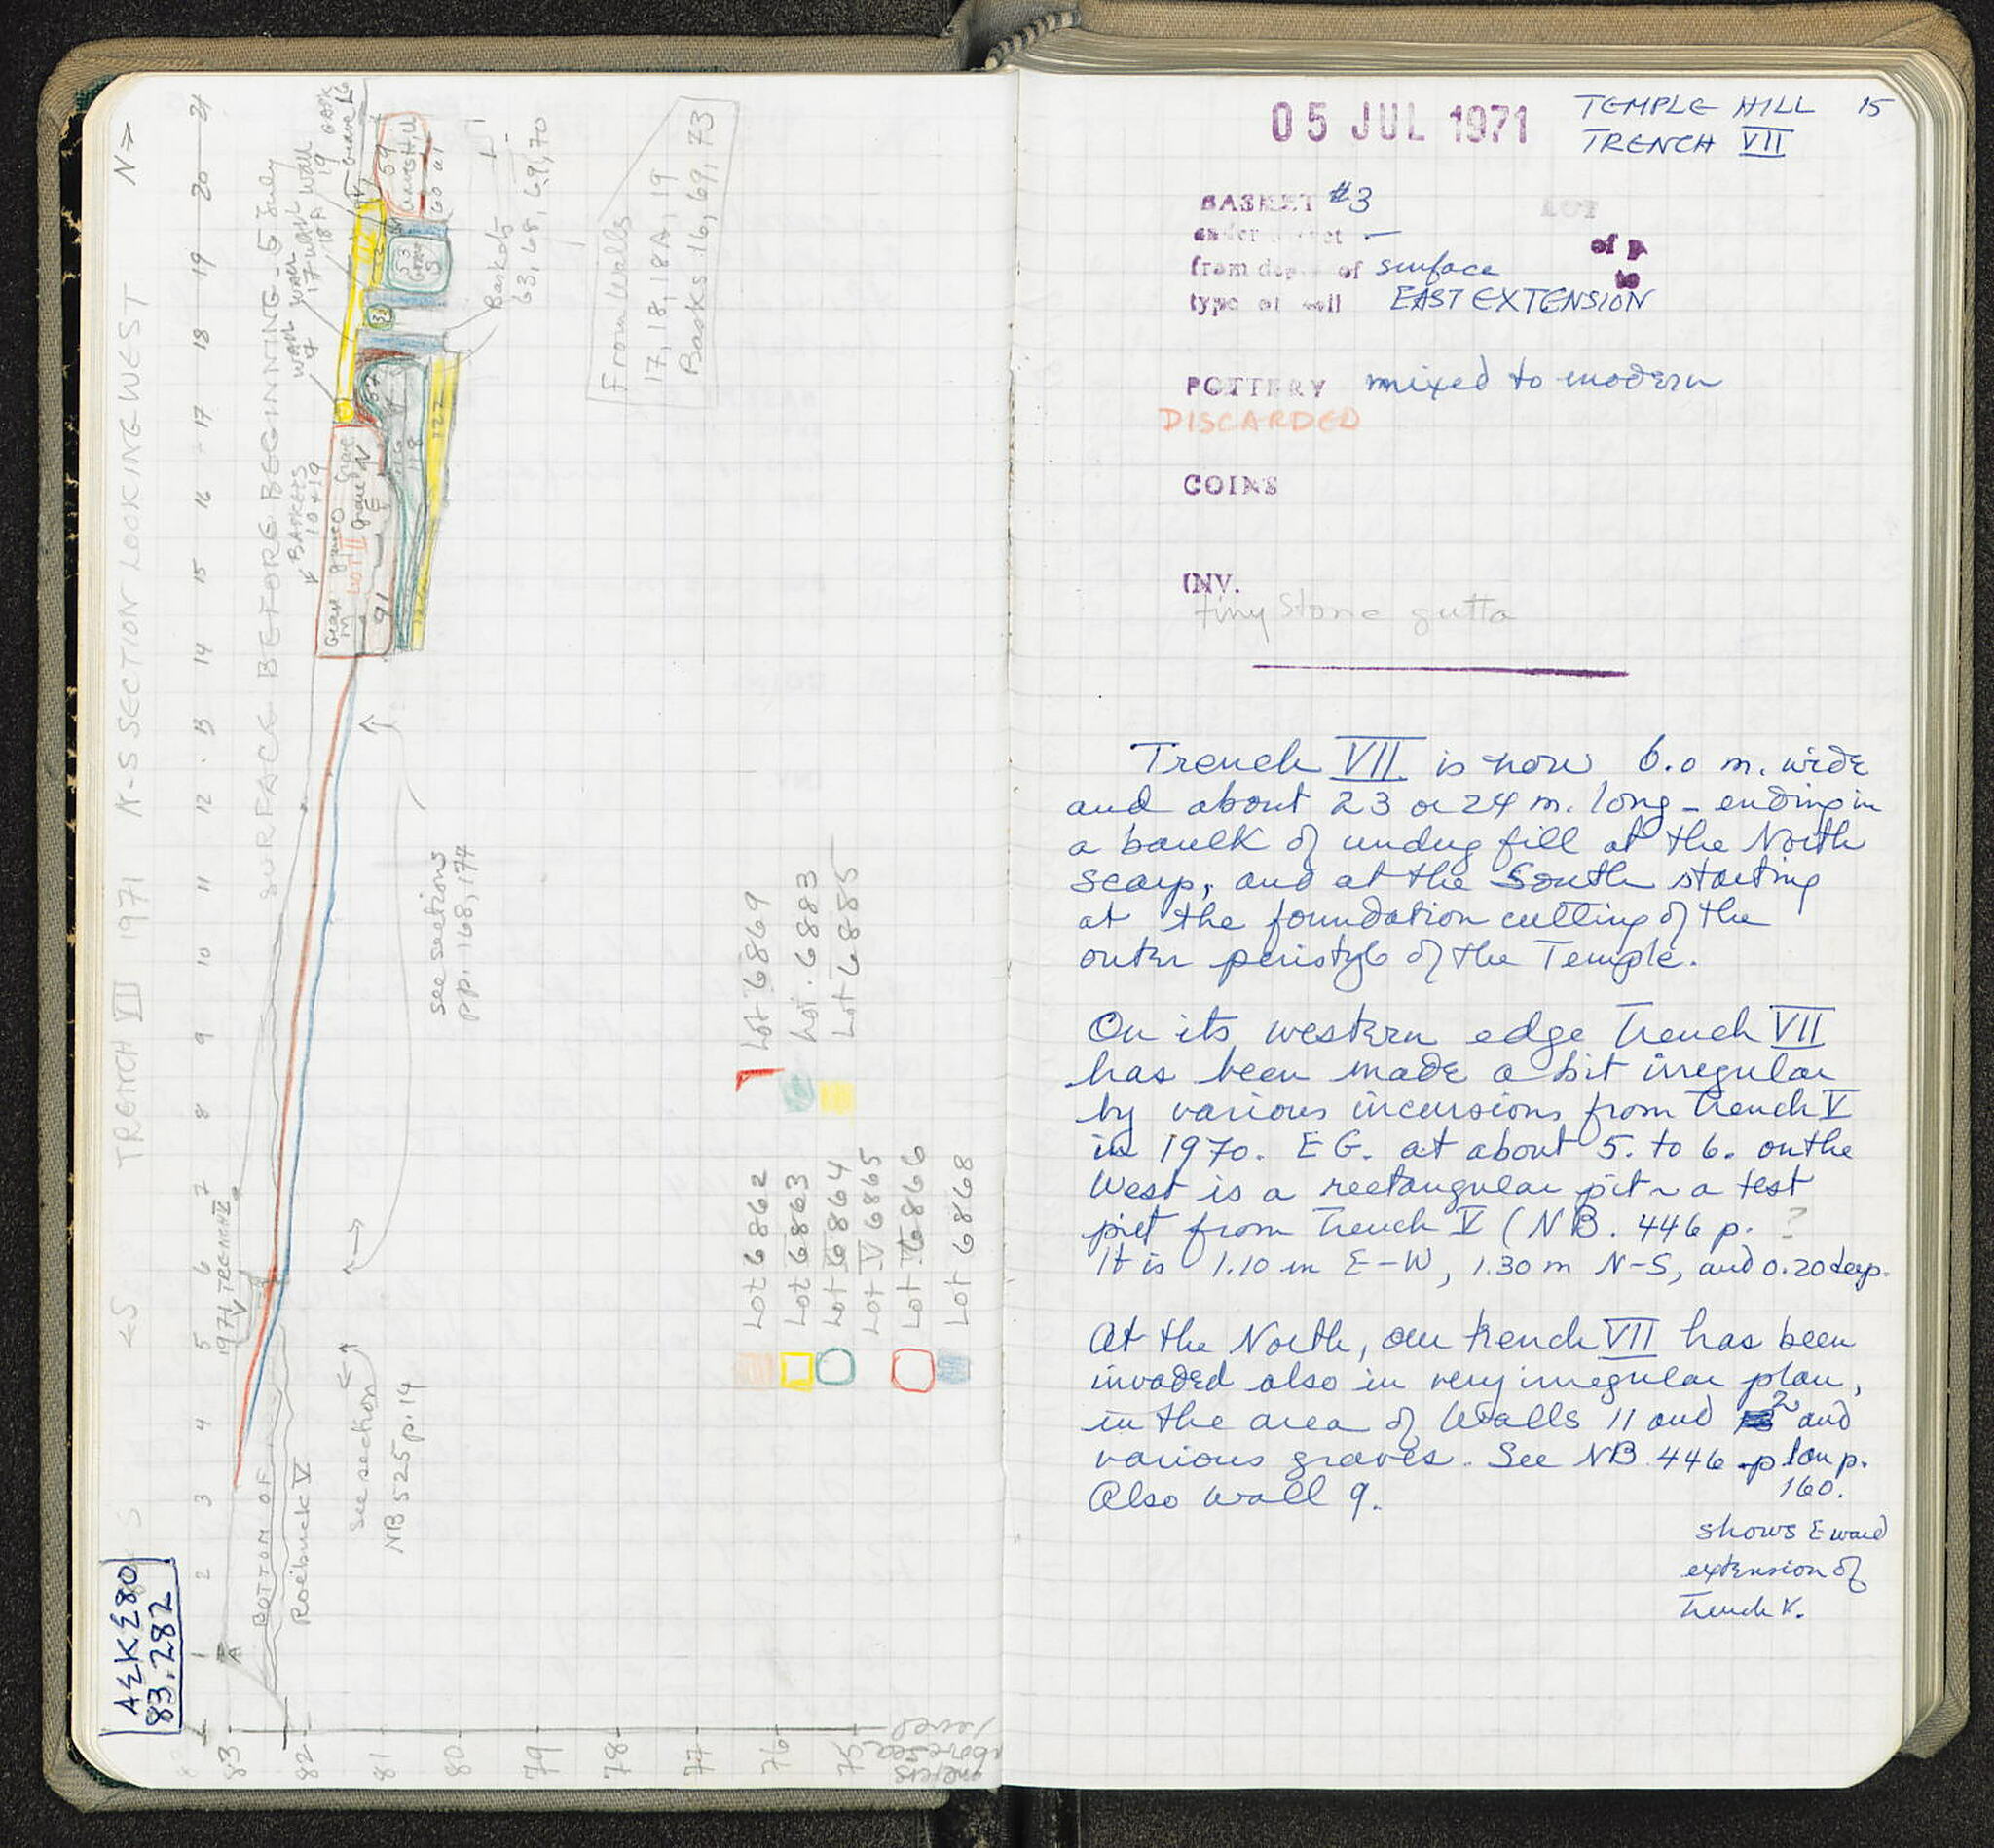 N→
TRENCH VII 1971 N-S SECTION LOOKING WEST
←S
1 2 3 4 5 6 7 8 9 10 11 12 13 14 15 16 17 18 19 20 21
SURFACE BEFORE BEGINNING - 5 July
1971 TRENCH V
BOTTOM OF
Roebuck V
A
ΑΣΚΣ80
83.282
see section
NB 525 p.14
see sections
pp. 168, 177
BASKETS
10 + 19
Baskets
63, 68, 69, 70
From Walls
17, 18, 18A, 19
Basks 16, 69, 73
LOT II
91
127
59
53
Lot 6862
Lot 6863
Lot 6864
Lot V 6865
Lot 6866
Lot 6868
Lot 6869
Lot. 6883
Lot 6885
83 82 81 80 79 78 77 76 75
meters
above sea
level
05 JUL 1971
TEMPLE HILL 15
TRENCH VII
BASKET #3
LOT
under —
of p
from depth of surface
to
type of soil EAST EXTENSION
POTTERY mixed to modern
DISCARDED
COINS
INV.
tiny stone gutta
Trench VII is now 6.0 m. wide
and about 23 or 24 m. long - ending in
a baulk of undug fill at the North
scarp, and at the South starting
at the foundation cutting of the
outer peristyle of the Temple.
On its western edge Trench VII
has been made a bit irregular
by various incursions from Trench V
in 1970. E G. at about 5. to 6. on the
West is a rectangular pit ~ a test
piet from Trench V (NB. 446 p. ?
It is 1.10 m E-W, 1.30 m N-S, and 0.20 deep.
At the North, our trench VII has been
invaded also in very irregular plan,
in the area of Walls 11 and 2 and
various graves. See NB 446 plan p.
160.
Also Wall 9.
shows E ward
extension of
Trench V.